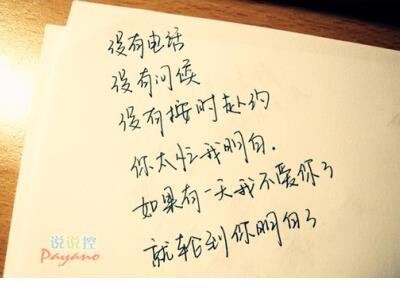 没有电话
没有问候
没有按时赴约
你太忙我明白.
如果有一天我不爱你了
就轮到你明白了
说说控
Payano